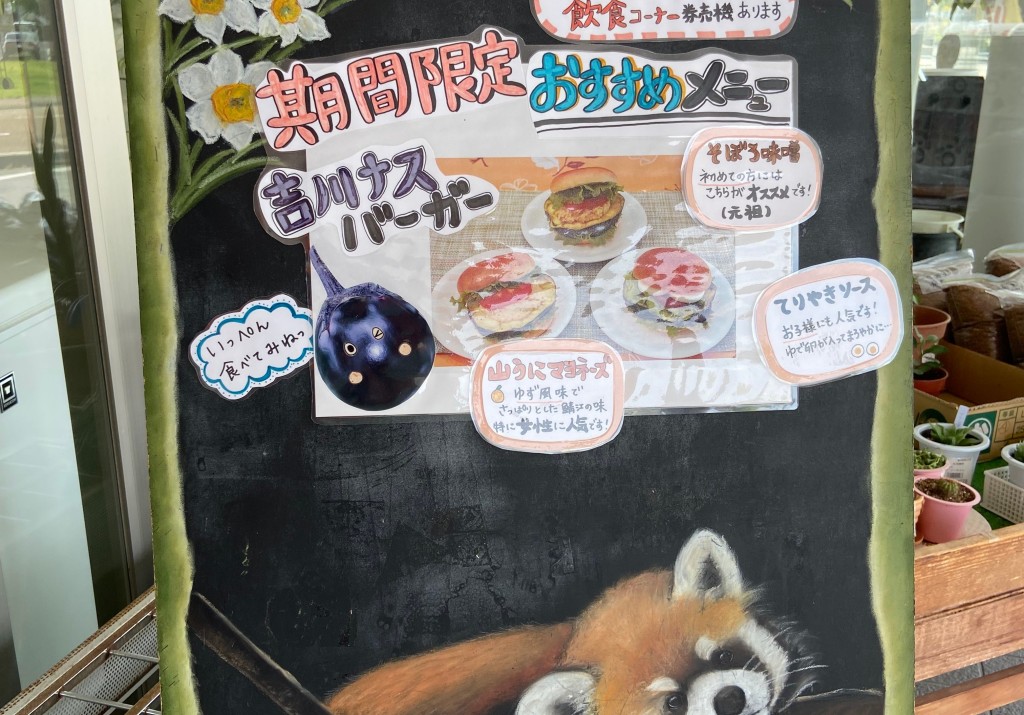 飲食コーナー券売機あります
期間限定
おすすめメニュー
吉川ナス
バーガー
そぼろ味噌
初めての方には
こちらがオススメです!
(元祖)
いっぺん
食べてみねっ
てりやきソース
お子様にも人気です!
ゆで卵が入ってまろやかに―
山うにマヨネーズ
ゆず風味で
さっぱりとした鯖江の味
特に女性に人気です!